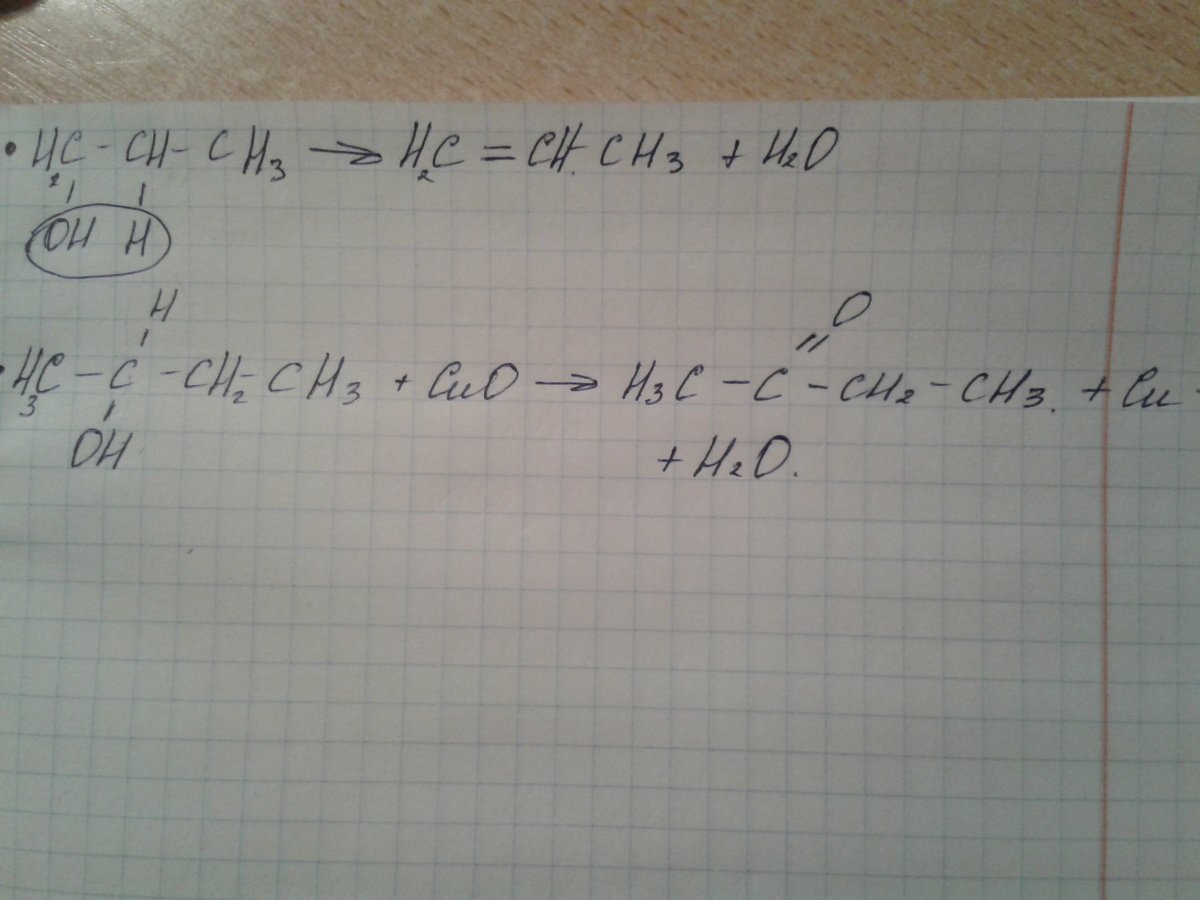 • H₂C - CH - CH₃ → H₂C = CH - CH₃ + H₂O
OH H
H O
• H₃C - C - CH₂ - CH₃ + CuO → H₃C - C - CH₂ - CH₃. + Cu +
OH + H₂O.